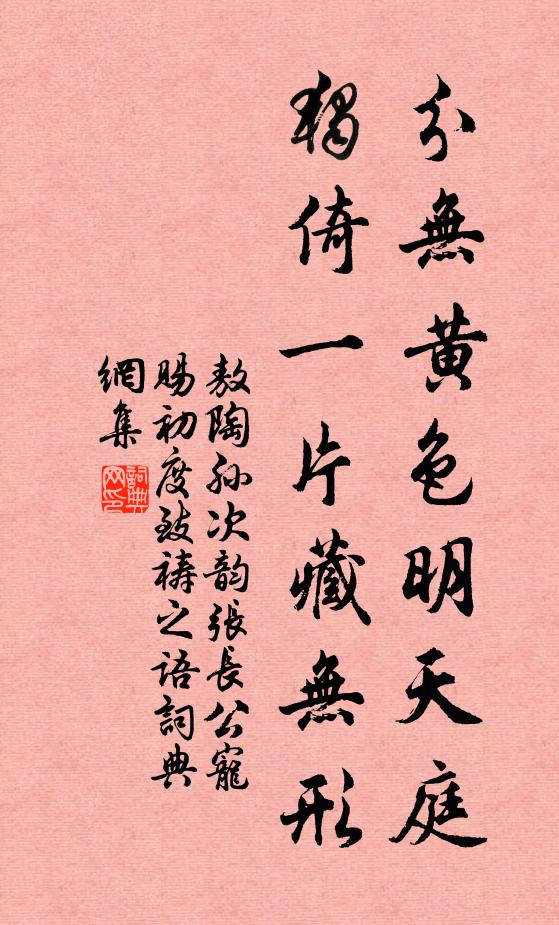 分無黃色明天庭
獨倚一片藏無形
敖陶孫次韵張長公寵
賜初度致禱之語詞典
網集
詞典
网印